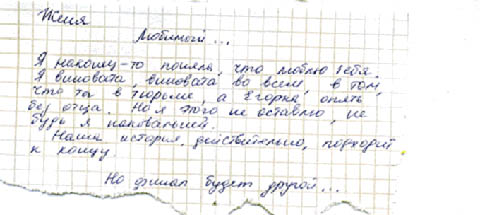 Женя
Любимый ...
Я наконец-то поняла, что люблю тебя.
Я виновата, виновата во всем, в том,
что ты в тюрьме, а Егорка опять
без отца. Но я этого не оставлю, не
будь я
Наша история, действительно, подходит
к концу.
Но финал будет другой...